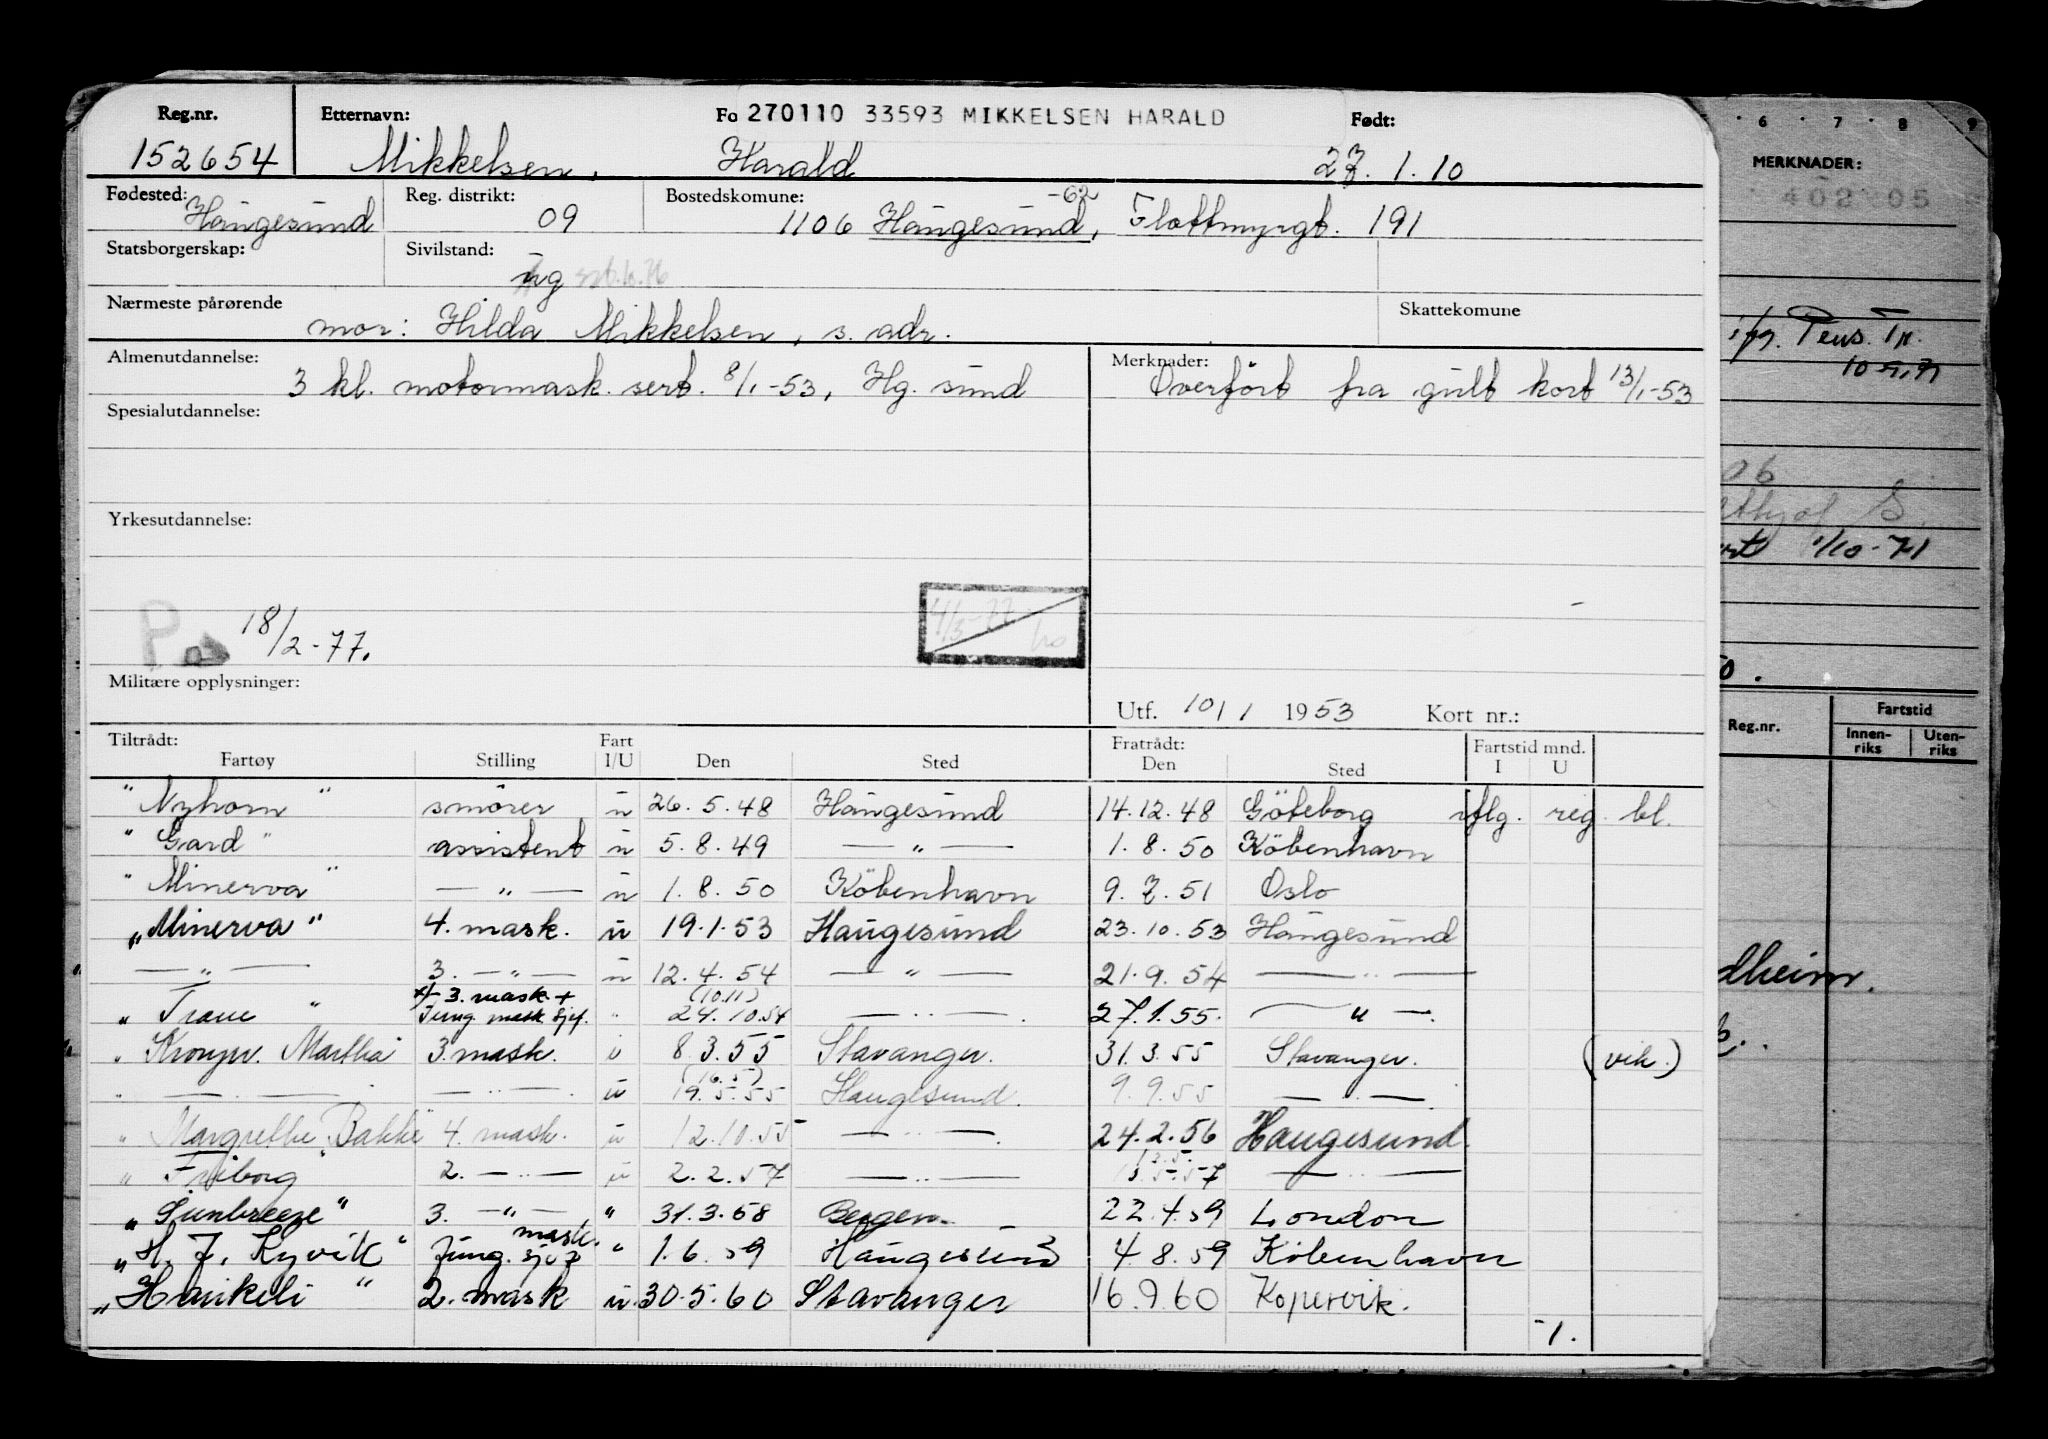 Reg.nr. Etternavn: Fo 270110 33593 MIKKELSEN HARALD Født:
152654 Mikkelsen, Harald 27. 1. 10
Fødested: Haugesund Reg. distrikt: 09 Bostedskomune: 1106 Haugesund, -62 Flottmyrgt. 191
Statsborgerskap: Sivilstand: ug
Nærmeste pårørende mor: Hilda Mikkelsen, s. adr. Skattekomune
Almenutdannelse: 3 kl. motormask. sert. 8/1-53, Hg. sund Merknader: Overført fra gult kort 13/1-53
Spesialutdannelse:
Yrkesutdannelse:
18/2-77.
Militære opplysninger:
Utf. 10/1 1953 Kort nr.:
Tiltrådt: Fart Fratrådt: Fartstid mnd.
Fartøy Stilling I/U Den Sted Den Sted I U
"Nyhorn" smører u 26.5.48 Haugesund 14.12.48 Göteborg iflg. reg. bl.
"Gard" assistent u 5.8.49 — " — 1.8.50 København
"Minerva" — " — u 1.8.50 København 9.7.51 Oslo
"Minerva" 4. mask. u 19.1.53 Haugesund 23.10.53 Haugesund
— " — 3. — " — u 12.4.54 — " — 21.9.54 — " —
"Trane" 3. mask + (10.11)
Fung mask sjef. " 24.10.54 — " — 27.1.55. — " —
" Kronpr. Martha 3. mask. u 8.3.55 Stavanger. 31.3.55 Stavanger. (vik.)
" — " — — " — u (16.5) 19.5.55 Haugesund. 9.9.55 — " —
" Margrethe Bakke 4. mask. u 12.10.55 — " — 24.2.56 Haugesund.
" Friborg" 2. — " — u 2.2.57 — " — 13.5.57 — " —
"Sunbreeze" 3. — " — " 31.3.58 Bergen. 22.4.59 London
"H. J. Kyvik" Fung. mask. sjef " 1.6.59 Haugesund 4.8.59 København
"Haukeli" 2. mask u. 30.5.60 Stavanger 16.9.60 Kopervik.
-1.
6 7 8 9
MERKNADER:
402 05
Pens. Tr.
06
1/10-71
Reg.nr. Fartstid
Innen-riks Uten-riks
dheim.